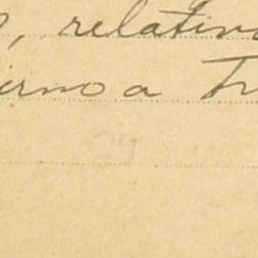 , relativ
irno a Tr